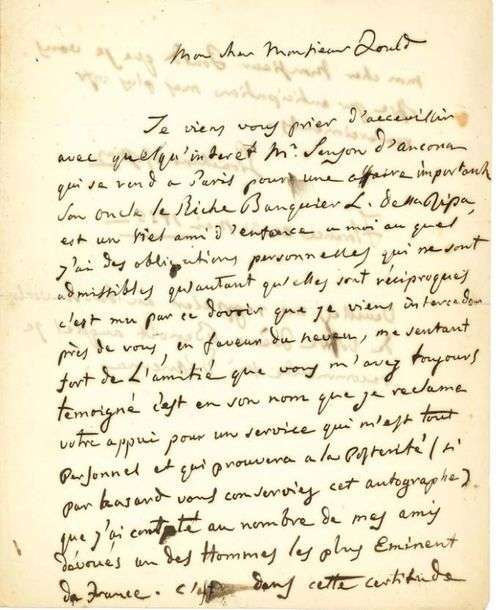 Mon cher Monsieur Fould
Je viens vous prier d'acceuillir
avec quelqu'interet Mr. d'ancona
qui se rend a Paris pour une affaire importante
Son oncle le Riche Banquier L. della Ripa
est un Viel ami d'enfance a moi au quel
j'ai des obligations personnelles qui ne sont
admissibles qu'autant qu'elles sont réciproques
c'est mu par ce devoir que je viens interceder
près de vous, en faveur du neveu, me sentant
fort de L'amitié que vous m'avez toujours
temoigné c'est en son nom que je reclame
votre appui pour un service qui m'est tout
Personnel et qui prouvera a la Posterité (si
par hasard vous conserviez cet autographe)
que j'ai compté au nombre de mes amis
dévoués un des Hommes les plus Eminent
de France. c'est dans cette certitude